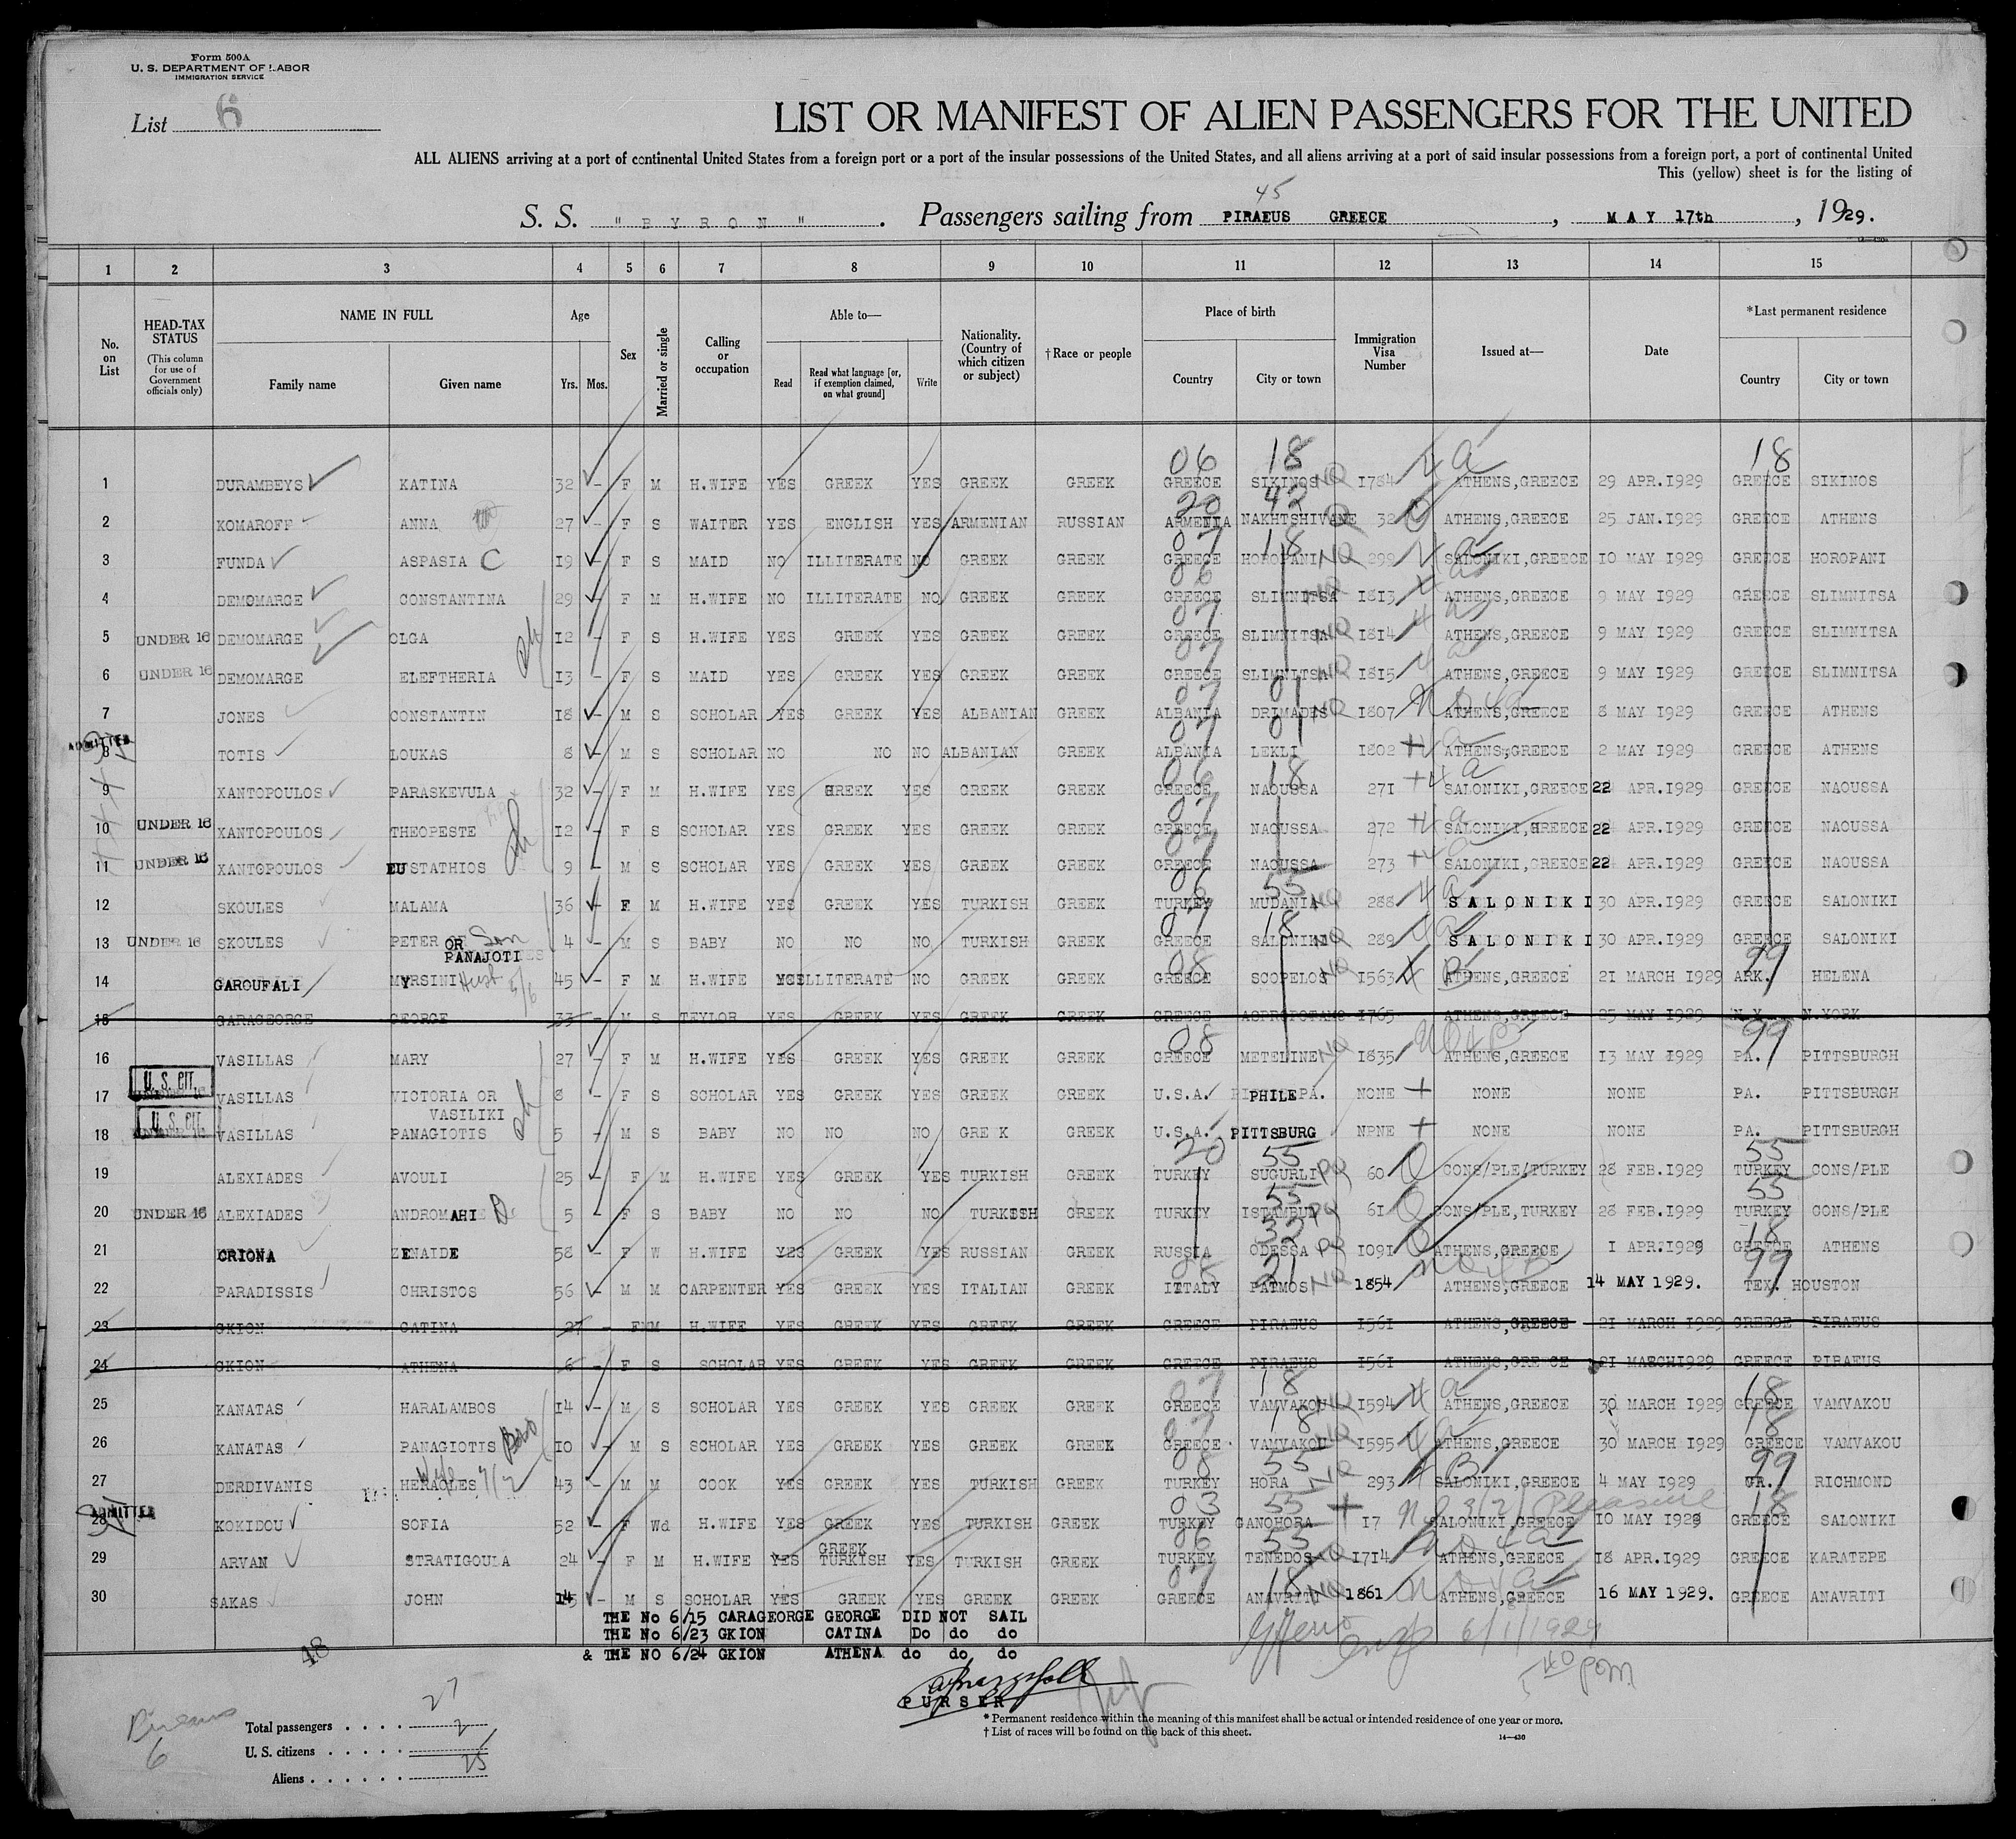 Form 500A
U. S. DEPARTMENT OF LABOR
IMMIGRATION SERVICE
List 6
LIST OR MANIFEST OF ALIEN PASSENGERS FOR THE UNITED
ALL ALIENS arriving at a port of continental United States from a foreign port or a port of the insular possessions of the United States, and all aliens arriving at a port of said insular possessions from a foreign port, a port of continental United
This (yellow) sheet is for the listing of
45
S. S. "BYRON". Passengers sailing from PIRAEUS GREECE, MAY 17th, 1929.
1 2 3 4 5 6 7 8 9 10 11 12 13 14 15
No. on List
HEAD-TAX STATUS (This column for use of Government officials only)
NAME IN FULL Family name Given name
Age Yrs. Mos.
Sex
Married or single
Calling or occupation
Able to— Read Read what language [or, if exemption claimed, on what ground] Write
Nationality. (Country of which citizen or subject)
†Race or people
Place of birth Country City or town
Immigration Visa Number
Issued at—
Date
*Last permanent residence Country City or town
06 18 18
1 DURAMBEYS KATINA 32 - F M H.WIFE YES GREEK YES GREEK GREEK GREECE SIKINOS NQ 1784 ATHENS,GREECE 29 APR.1929 GREECE SIKINOS
20 42
2 KOMAROFF ANNA 27 - F S WAITER YES ENGLISH YES ARMENIAN RUSSIAN ARMENIA NAKHTSHIVANE 32 ATHENS,GREECE 25 JAN.1929 GREECE ATHENS
07 18
3 FUNDA ASPASIA C 19 - F S MAID NO ILLITERATE NO GREEK GREEK GREECE HOROPANI NQ 299 SALONIKI,GREECE 10 MAY 1929 GREECE HOROPANI
06
4 DEMOMARGE CONSTANTINA 29 - F M H.WIFE NO ILLITERATE NO GREEK GREEK GREECE SLIMNITSA NQ 1813 ATHENS,GREECE 9 MAY 1929 GREECE SLIMNITSA
07
5 UNDER 16 DEMOMARGE OLGA 12 - F S H.WIFE YES GREEK YES GREEK GREEK GREECE SLIMNITSA NQ 1814 ATHENS,GREECE 9 MAY 1929 GREECE SLIMNITSA
07
6 UNDER 16 DEMOMARGE ELEFTHERIA 13 - F S MAID YES GREEK YES GREEK GREEK GREECE SLIMNITSA NQ 1815 ATHENS,GREECE 9 MAY 1929 GREECE SLIMNITSA
07 01
7 JONES CONSTANTIN 18 - M S SCHOLAR YES GREEK YES ALBANIAN GREEK ALBANIA DRIMADES NQ 1807 ATHENS,GREECE 8 MAY 1929 GREECE ATHENS
ADMITTED 07 01
8 TOTIS LOUKAS 8 - M S SCHOLAR NO NO NO ALBANIAN GREEK ALBANIA LEKLI 1802 ATHENS,GREECE 2 MAY 1929 GREECE ATHENS
06 18
9 XANTOPOULOS PARASKEVULA 32 - F M H.WIFE YES GREEK YES GREEK GREEK GREECE NAOUSSA 271 SALONIKI,GREECE 22 APR.1929 GREECE NAOUSSA
07
10 UNDER 16 XANTOPOULOS THEOPESTE 12 - F S SCHOLAR YES GREEK YES GREEK GREEK GREECE NAOUSSA 272 SALONIKI,GREECE 22 APR.1929 GREECE NAOUSSA
07
11 UNDER 16 XANTOPOULOS EUSTATHIOS 9 - M S SCHOLAR YES GREEK YES GREEK GREEK GREECE NAOUSSA 273 SALONIKI,GREECE 22 APR.1929 GREECE NAOUSSA
06 55
12 SKOULES MALAMA 36 - F M H.WIFE YES GREEK YES TURKISH GREEK TURKEY MUDANIA NQ 288 SALONIKI 30 APR.1929 GREECE SALONIKI
07 18
13 UNDER 16 SKOULES PETER OR PANAJOTI Son 4 - M S BABY NO NO NO TURKISH GREEK GREECE SALONIKI NQ 289 SALONIKI 30 APR.1929 GREECE SALONIKI
08 99
14 GAROUFALI MYRSINI Hust 5/6 45 - F M H.WIFE ILLITERATE NO GREEK GREEK GREECE SCOPELOS NQ 1563 ATHENS,GREECE 21 MARCH 1929 ARK. HELENA
15 CARAGEORGE GEORGE 33 - M S TEYLOR YES GREEK YES GREEK GREEK GREECE ASPROPOTAMO 1765 ATHENS,GREECE 25 MAY 1929 N.Y. N.YORK
08 99
16 VASILLAS MARY 27 - F M H.WIFE YES GREEK YES GREEK GREEK GREECE METELINE NQ 1835 ATHENS,GREECE 13 MAY 1929 PA. PITTSBURGH
U.S. CIT.
17 VASILLAS VICTORIA OR VASILIKI 8 - F S SCHOLAR YES GREEK YES GREEK GREEK U.S.A. PHILE PA. NONE NONE NONE PA. PITTSBURGH
U.S. CIT.
18 VASILLAS PANAGIOTIS 5 - M S BABY NO NO NO GRE K GREEK U.S.A. PITTSBURG NPNE NONE NONE PA. PITTSBURGH
20 55 55
19 ALEXIADES AVOULI 25 - F M H.WIFE YES GREEK YES TURKISH GREEK TURKEY SUGURLI PQ 60 CONS/PLE/TURKEY 28 FEB.1929 TURKEY CONS/PLE
55 55
20 UNDER 16 ALEXIADES ANDROMAHI D. 5 - F S BABY NO NO NO TURKISH GREEK TURKEY ISTAMBUL PQ 61 CONS/PLE,TURKEY 28 FEB.1929 TURKEY CONS/PLE
18
21 CRIONA ZENAIDE 58 - F W H.WIFE YES GREEK YES RUSSIAN GREEK RUSSIA ODESSA PQ 1091 ATHENS,GREECE 1 APR.1929 GREECE ATHENS
08 21 99
22 PARADISSIS CHRISTOS 56 - M M CARPENTER YES GREEK YES ITALIAN GREEK ITALY PATMOS NQ 1854 ATHENS,GREECE 14 MAY 1929. TEX. HOUSTON
23 GKION CATINA 27 - F M H.WIFE YES GREEK YES GREEK GREEK GREECE PIRAEUS 1561 ATHENS,GREECE 21 MARCH 1929 GREECE PIRAEUS
24 GKION ATHENA 6 - F S SCHOLAR YES GREEK YES GREEK GREEK GREECE PIRAEUS 1561 ATHENS,GREECE 21 MARCH 1929 GREECE PIRAEUS
07 18 18
25 KANATAS HARALAMBOS 14 - M S SCHOLAR YES GREEK YES GREEK GREEK GREECE VAMVAKOU NQ 1594 ATHENS,GREECE 30 MARCH 1929 GREECE VAMVAKOU
07 18 18
26 KANATAS PANAGIOTIS Bro 10 - M S SCHOLAR YES GREEK YES GREEK GREEK GREECE VAMVAKOU NQ 1595 ATHENS,GREECE 30 MARCH 1929 GREECE VAMVAKOU
08 55 99
27 DERDIVANIS HERACLES Wife 7/2 43 - M M COOK YES GREEK YES TURKISH GREEK TURKEY HORA NQ 293 SALONIKI,GREECE 4 MAY 1929 GR. RICHMOND
ADMITTED 03 55 3(2) Pleasure 18
28 KOKIDOU SOFIA 52 - F Wd H.WIFE YES GREEK YES TURKISH GREEK TURKEY GANOHORA 17 SALONIKI,GREECE 10 MAY 1929 GREECE SALONIKI
06 55
29 ARVAN STRATIGOULA 24 - F M H.WIFE YES GREEK TURKISH YES TURKISH GREEK TURKEY TENEDOS NQ 1714 ATHENS,GREECE 18 APR.1929 GREECE KARATEPE
07 18
30 SAKAS JOHN 14 - M S SCHOLAR YES GREEK YES GREEK GREEK GREECE ANAVRITI NQ 1861 ATHENS,GREECE 16 MAY 1929. GREECE ANAVRITI
THE No 6/15 CARAGEORGE GEORGE DID NOT SAIL
THE No 6/23 GKION CATINA Do do do
& THE NO 6/24 GKION ATHENA do do do
6/1/1929
48
PURSER
Piraeus
6
Total passengers . . . . 27
U. S. citizens . . . . . 2
Aliens . . . . . . 25
* Permanent residence within the meaning of this manifest shall be actual or intended residence of one year or more.
† List of races will be found on the back of this sheet.
14—430